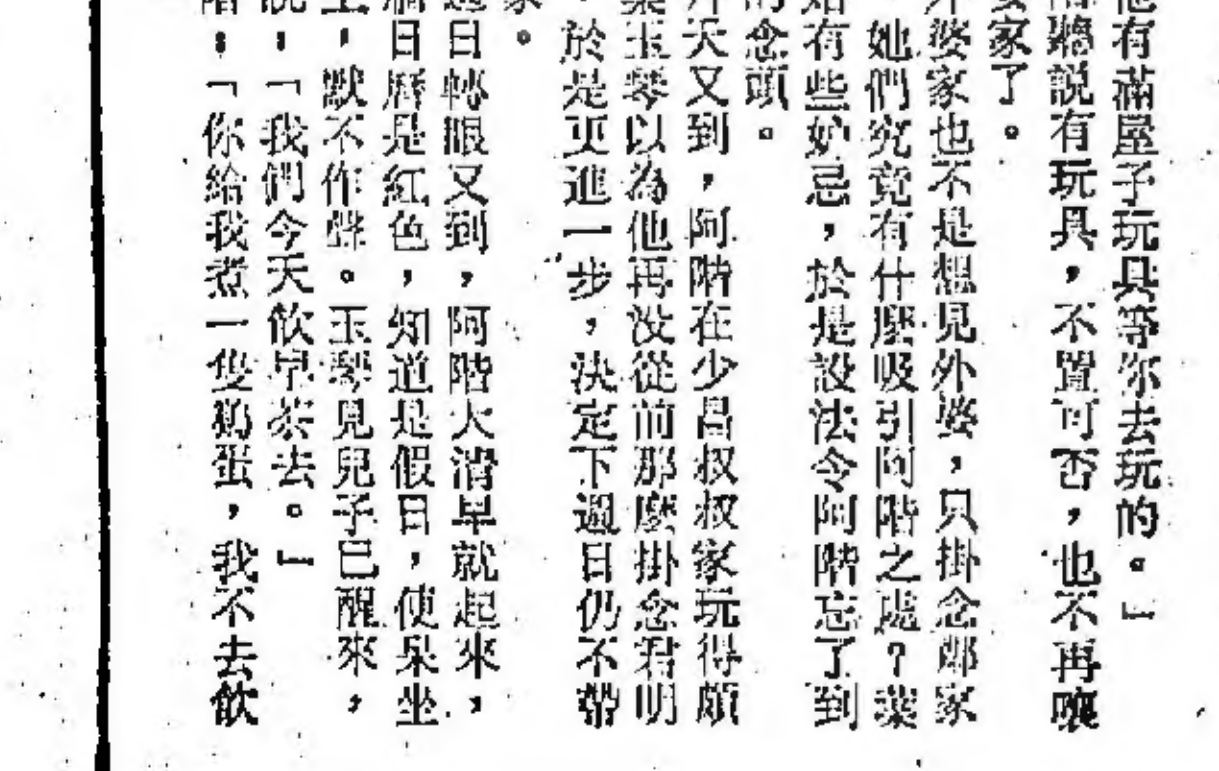 他有滿屋子玩具等你去玩的。」
聽說有玩具，不置可否，也不再嚷
家了。
外婆家也不是想見外婆，只掛念鄰家
她們究竟有什麼吸引阿階之處？葉
有些妒忌，於是設法令阿階忘了到
的念頭。
天又到，阿階在少昌叔叔家玩得頗
葉玉琴以為他再沒從前那麼掛念君明
。於是更進一步，決定下週日仍不帶
家。
週日轉眼又到，阿階大清早就起來，
日曆是紅色，知道是假日，便呆坐
上，默不作聲。玉琴見兒子已醒來，
說：「我們今天飲早茶去。」
階：「你給我煮一隻鷄蛋，我不去飲